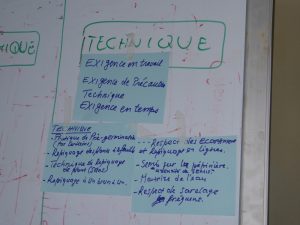 TECHNIQUE
Exigence en travail
Exigence de Précaution
Technique
Exigence en temps
TECHNIQUE
Technique de Pré-germination
Repiquage des plants
Technique de Repiquage
de plants
Repiquage à un brin
--- Respect des écartements
Repiquage en lignes.
Semis sur la pépinière,
Maîtrise de l'eau
Respect de sarclage
fréquent.